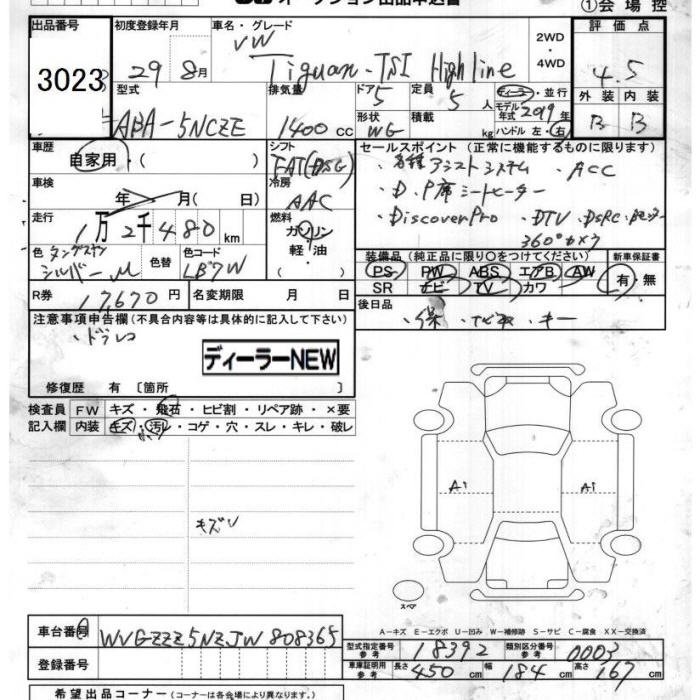 オークション出品申込書
①会場控
出品番号
3023
初度登録年月
29 8月
車名・グレード
VW
Tiguan-TSI Highline
2WD
・
4WD
評価点
4.5
外装 内装
B B
型式
ABA-5NCZE
排気量
1400 cc
ドア
5
形状
WG
定員
5 人
積載
kg
ディーラー・並行
モデル年式 2019年
ハンドル 左・右
車歴
自家用・( )
シフト
FAT(DSG)
車検
年 月( 日)
冷房
AAC
走行
1万2千480km
燃料
ガソリン
軽・油
( )
色
タングステン
シルバーM
色替
色コード
LB7W
R券
17,670円
名変期限 月 日
セールスポイント (正常に機能するものに限ります)
・各種アシストシステム ・ACC
・D.P席シートヒーター
・DiscoverPro ・DTV ・DSRC
360°カメラ
装備品(純正品に限り○をつけてください)
PS PW ABS エアB AW
SR ナビ TV カワ
新車保証書
有・無
後日品
・保 ・ナビ ・キー
注意事項申告欄(不具合内容等は具体的に記入して下さい)
・ドラレコ
ディーラーNEW
修復歴 有〔箇所 〕
検査員
記入欄
FW キズ・飛石・ヒビ割・リペア跡・×要
内装 キズ・汚レ・コゲ・穴・スレ・キレ・破レ
キズ
A1
A1
スペア
A-キズ E-エクボ U-凹み W-補修跡 S-サビ C-腐食 XX-交換済
車台番号
WVGZZZ5NZJW808365
登録番号
型式指定番号
参考
18392
類別区分番号
参考
0003
車庫証明用
参考
長さ 450cm
幅 184cm
高さ 167cm
希望出品コーナー(コーナーは各会場により異なります。)